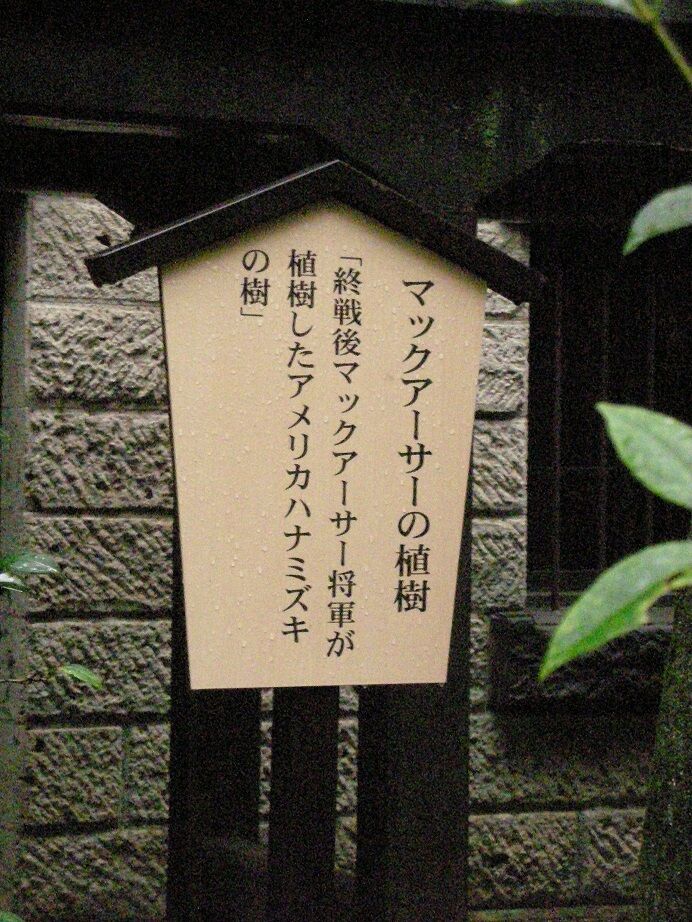 マックアーサーの植樹
「終戦後マックアーサー将軍が
植樹したアメリカハナミズキ
の樹」